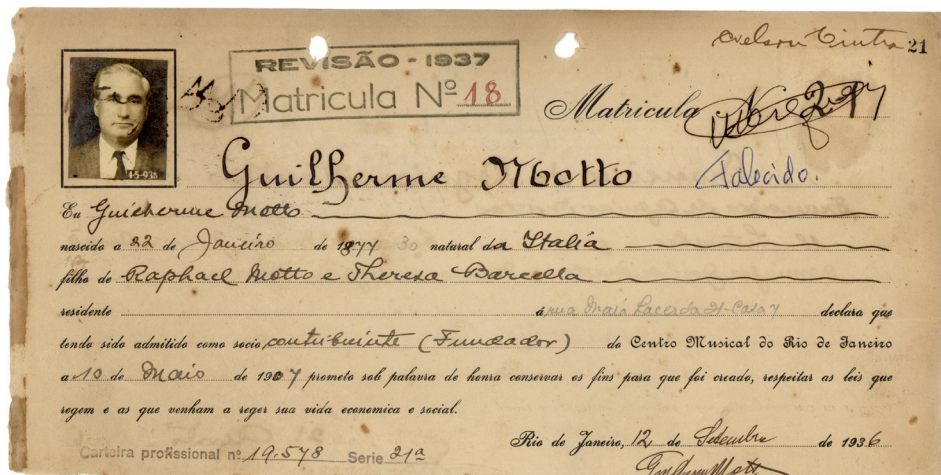 Nelson Cintra 21
REVISÃO - 1937
Matricula Nº 18
Matricula N
1-5-935
Guilherme Motto Falecido.
Eu Guilherme Motto
nascido a 22 de Janeiro de 1877 30 natural da Italia
filho de Raphael Motto e Thereza Barcella
residente á rua Maia Lacerda 21-Casa 7 declara que
tendo sido admitido como socio contribuinte (Fundador) do Centro Musical do Rio de Janeiro
a 10 de Maio de 1907 prometo sob palavra de honra conservar os fins para que foi creado, respeitar as leis que
regem e as que venham a reger sua vida economica e social.
Rio de Janeiro, 12 de Setembro de 1936
Carteira profissional nº 19.578 Serie 21ª
Guilherme Motto